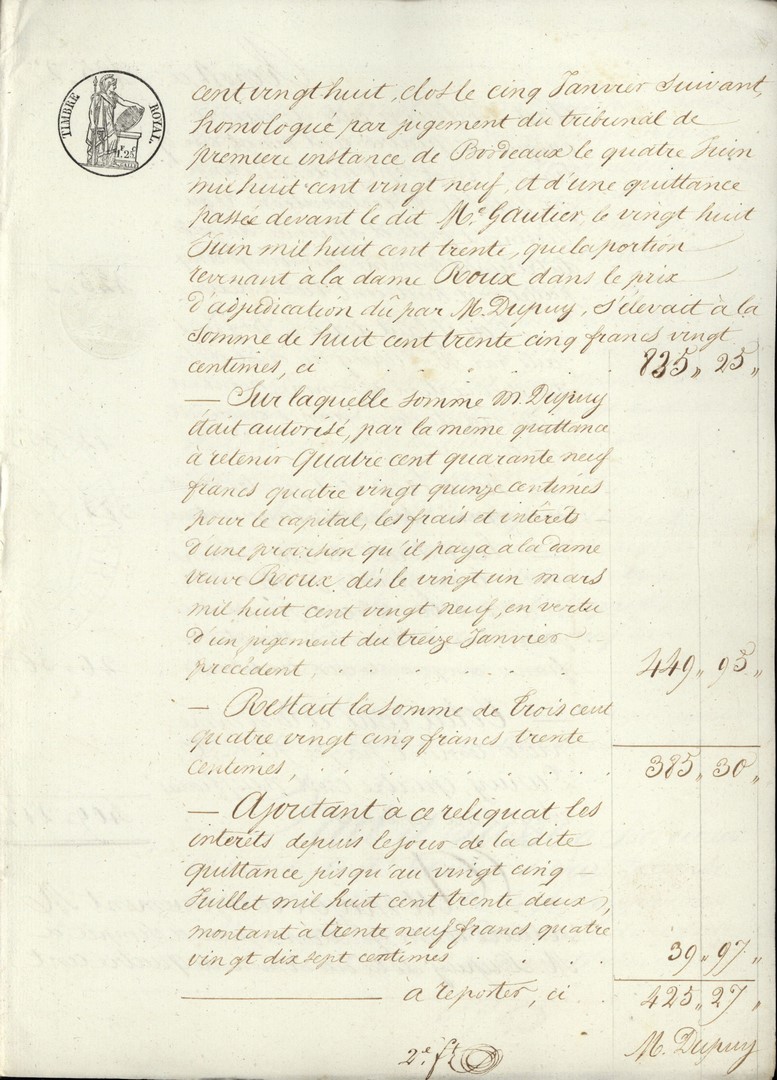 TIMBRE ROYAL.
1.F 25C
cent vingt huit, clos le cinq Janvier suivant,
homologué par jugement du tribunal de
premiere instance de Bordeaux le quatre Juin
mil huit cent vingt neuf, et d'une quittance
passée devant le dit Me. Gautier le vingt huit
Juin mil huit cent trente, que la portion
revenant à la dame Roux dans le prix
d'adjudication dû par M. Dupuy, s'élevait à la
somme de huit cent trente cinq francs vingt
centimes, ci . . . . 835 „ 25 „
— Sur laquelle somme M. Dupuy
était autorisé, par la même quittance
à retenir Quatre cent quarante neuf
francs quatre vingt quinze centimes
pour le capital, les frais et intérêts
d'une provision qu'il paya à la dame
veuve Roux dès le vingt un mars
mil huit cent vingt neuf, en vertu
d'un jugement du treize Janvier
précédent, . . . . 449 „ 95 „
— Restait la somme de Trois cent
quatre vingt cinq francs trente
centimes, . . . . 385 „ 30 „
— Ajoutant à ce reliquat les
intérêts depuis le jour de la dite
quittance jusqu'au vingt cinq
Juillet mil huit cent trente deux,
montant à trente neuf francs quatre
vingt dix sept centimes . . . 39 „ 97 „
a reporter, ci . 425 „ 27 „
2e. ft
M. Dupuy